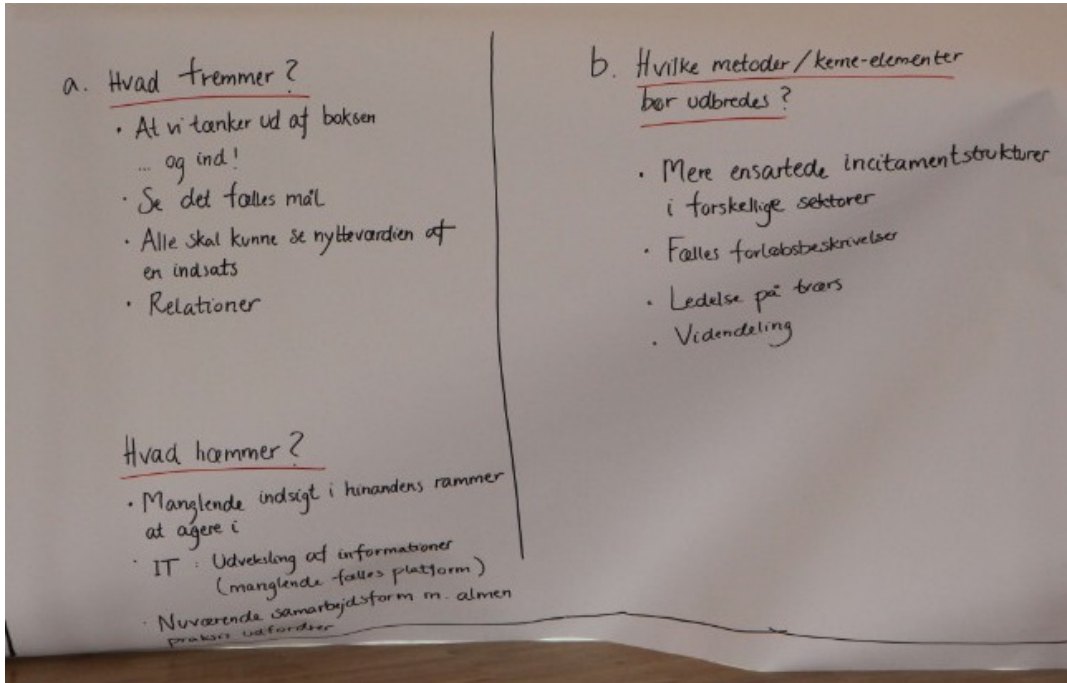 a. Hvad fremmer?
• At vi tænker ud af boksen
... og ind!
• Se det fælles mål
• Alle skal kunne se nytteværdien af
en indsats
• Relationer
Hvad hæmmer?
• Manglende indsigt i hinandens rammer
at agere i
• IT: Udveksling af informationer
(manglende fælles platform)
• Nuværende samarbejdsform m. almen
praksis udfordrer
b. Hvilke metoder/kerne-elementer
bør udbredes?
• Mere ensartede incitamentstrukturer
i forskellige sektorer
• Fælles forløbsbeskrivelser
• Ledelse på tværs
• Videndeling